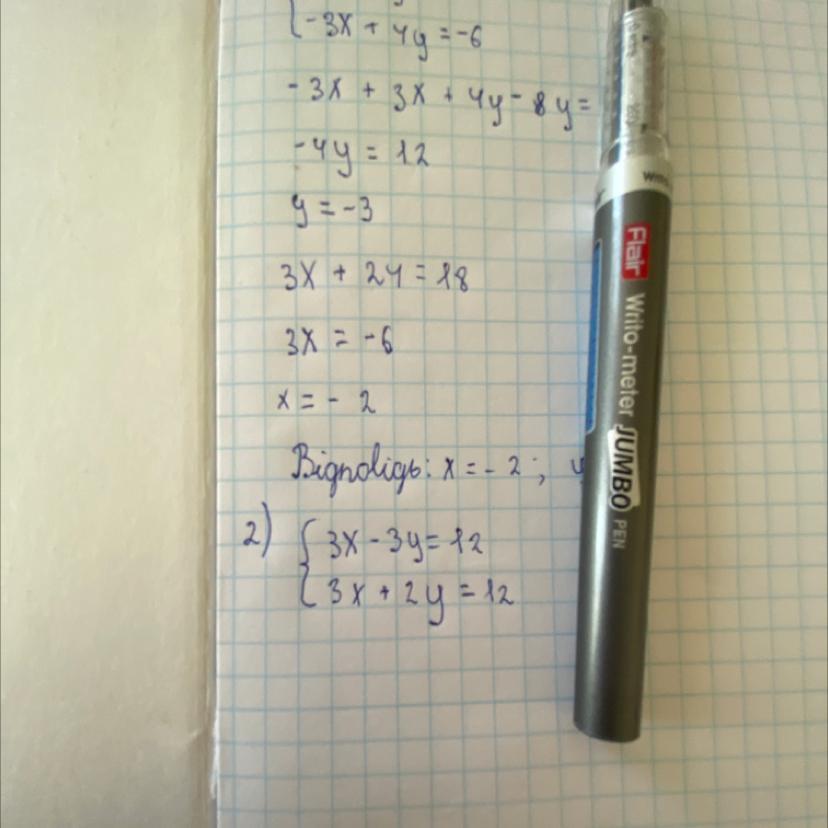 -3x + 4y = -6
-3x + 3x + 4y - 8y =
-4y = 12
y = -3
3x + 24 = 18
3x = -6
x = - 2
Відповідь: x = - 2 ; y
2) { 3x - 3y = 12
3x + 2y = 12
Flair Writo-meter JUMBO PEN